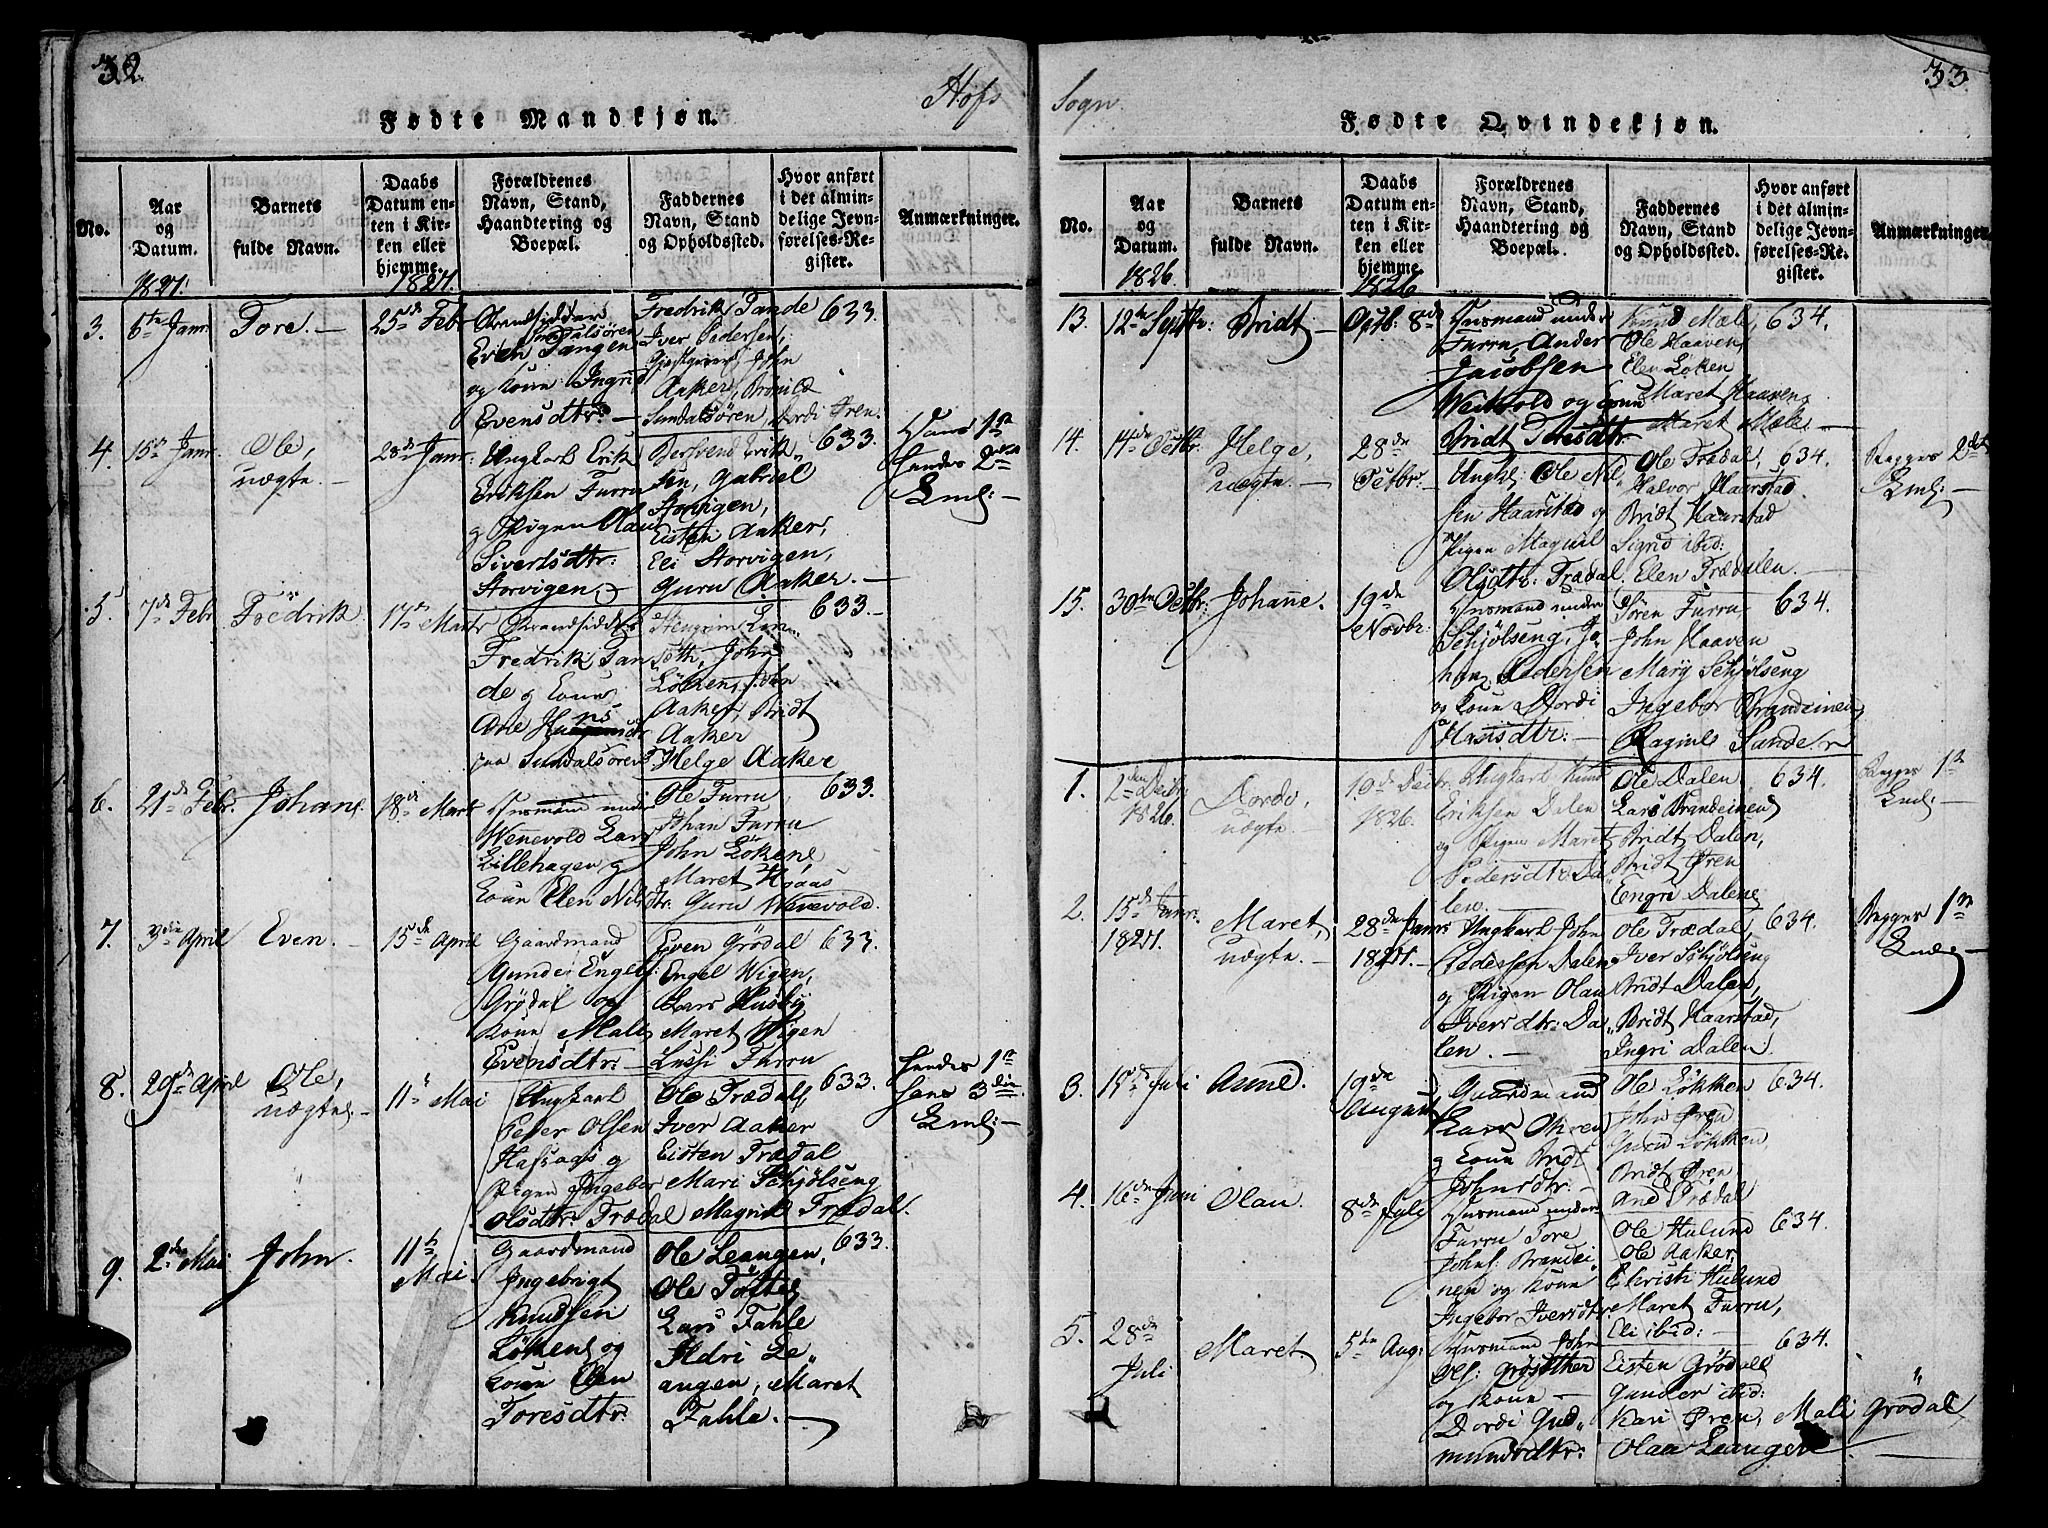 32.
Hofs
Fødte Mandkjøn.
No.
Aar og Datum.
Barnets fulde Navn.
Daabs Datum enten i Kirken eller hjemme.
Forældrenes Navn, Stand, Haandtering og Boepæl.
Faddernes Navn, Stand og Opholdssted.
Hvor anført i det almindelige Jevnførelses-Register.
Anmærkninger.
1827.
1827.
3.
6te Janr
Tore.
25de Feb
Strandsidder
Sundalsören
Erich Tangen
og Kone Ingrid
Evensdtr.
Fredrik Tande
Iver Pedersen,
John
Aaker,
Sundalsören, Dordi Øren.
633.
4.
15de Janr
Ole,
uægte.
28de Janr:
Ungkarl Erik
Eriksen Furru
og Pigen Olau
Sivertsdtr:
Storvigen
sen, Gabriel
Storvigen,
Eisten Aaker,
Eli Storvigen,
Guru Aaker.
633.
Hans 1ste
Hendes 2det
Leul:
5
7de Febr
Fredrik
17de Marts
Strandsidder
Fredrik Tan
de og Kone
paa Sundalsören
John
Löken,
Aaker, Bridt
Aaker
Helge Aaker
633.
6.
21de Febr.
Johan
18de Marts
Huusmand under
Wennevold Lars
Lillehagen og
Kone Elen Nilsdtr:
Ole Furru,
Johan Furru
John Löken,
Maret Hoaas
Guru Wennevold.
633.
7.
3die April
Even.
15de April
Gaardmand
Gunder Engels:
Grödal og
Kone Mali
Evensdtr:
Even Grödal
Engel Wigen,
Lars Husby
Maret Wigen
Furru
633.
8.
29de April
Ole,
uægte.
11te Mai
Ungkarl
Peder Olsen
og
Pigen Ingebor
Olsdtr: Trædal
Ole Trædal,
Iver Aaker
Eisten Trædal
Mari Schjölseng
Magnil Trædal.
633.
Hendes 1ste
hans 3die
Leul:
9.
2den Mai
John.
11te
Mai
Gaardmand
Ingebrigt
Knudsen
Löken og
Kone
Toresdtr:
Ole Leangen,
Ole
Lars Fahle
Ildri Le„
angen, Maret
Fahle.
633.
33.
Sogn.
Fødte Qvindekjøn.
No.
Aar og Datum.
Barnets fulde Navn.
Daabs Datum enten i Kirken eller hjemme.
Forældrenes Navn, Stand, Haandtering og Boepæl.
Faddernes Navn, Stand og Opholdssted.
Hvor anført i det almindelige Jevnførelses-Register.
Anmærkninger.
1826
1826
13.
12te Septbr:
Bridt
Octb: 8de
Huusmand under
Furru, Ander
Jacobsen
og Kone
Bridt Toresdtr
Knud Mæle,
Ole Haaven,
Elen Löken
Maret Haaven,
Maret Mæle.
634.
14.
14de Octbr:
Helge,
uægte.
28de
Octbr:
Ungkl: Ole Nil„
sen Haarstad og
Pigen Magnil
Olsdtr: Trædal,
Ole Trædal,
Halvor Haarstad
Bridt Haarstad
Sigrid ibid:
Elen Trædalen.
634.
Begges 2det
Leul:
15.
30te Octbr:
Johanne.
19de
Novbr:
Huusmand under
Schjölseng, Jo
han Pedersen
og Kone Dordi
Hansdtr:
Sören Furru,
John Haaven
Mary Schjölseng
Ingebor Brandeinen,
Ragnild Sande.
634.
1.
2den Decbr
1826.
Dordi,
uægte.
10de Decbr
1826.
Ungkarl Knud
Eriksen Dalen
og Pigen Maret
Pedersdtr: Da„
len.
Ole Dalen
Lars Brandeinen
Bridt Dalen,
Bridt Øren
Engri Dalen
634.
Begges 1ste
Leul:
2.
15de Janr:
1827.
Maret,
uægte.
28de Janr:
1827.
Ungkarl John
Pedersen Dalen
og Pigen Olau
Iversdtr: Da„
len.
Ole Trædal,
Iver Schjölseng
Bridt Dalen,
Bridt Haarstad,
Ingri Dalen.
634.
Begges 1ste
Leul:
3.
15de Juli
Anne.
19de
August
Gaardmand
Lars Øren
og Kone Bridt
Johnsdtr:
Ole Løkken
John Øren
Guru Løkken
Bridt Øren
Ane Trædal
634.
4.
16de Juni
Olau.
8de Juli
Huusmand under
Furru Tore
Johns: Brandei
nen og Kone
Ingebor Iversdtr:
Ole Hulund
Ole Aaker
Christi Hulund
Maret Furru,
Eli ibid:
634.
5.
28de
Juli
Maret.
5te Aug:
Huusmand John
Ols:
og Kone
Dordi Gud„
mundsdtr:
Eisten Grödal
Gunder ibid:
Kari Øren, Mali Grödal,
Olau Leangen
634.